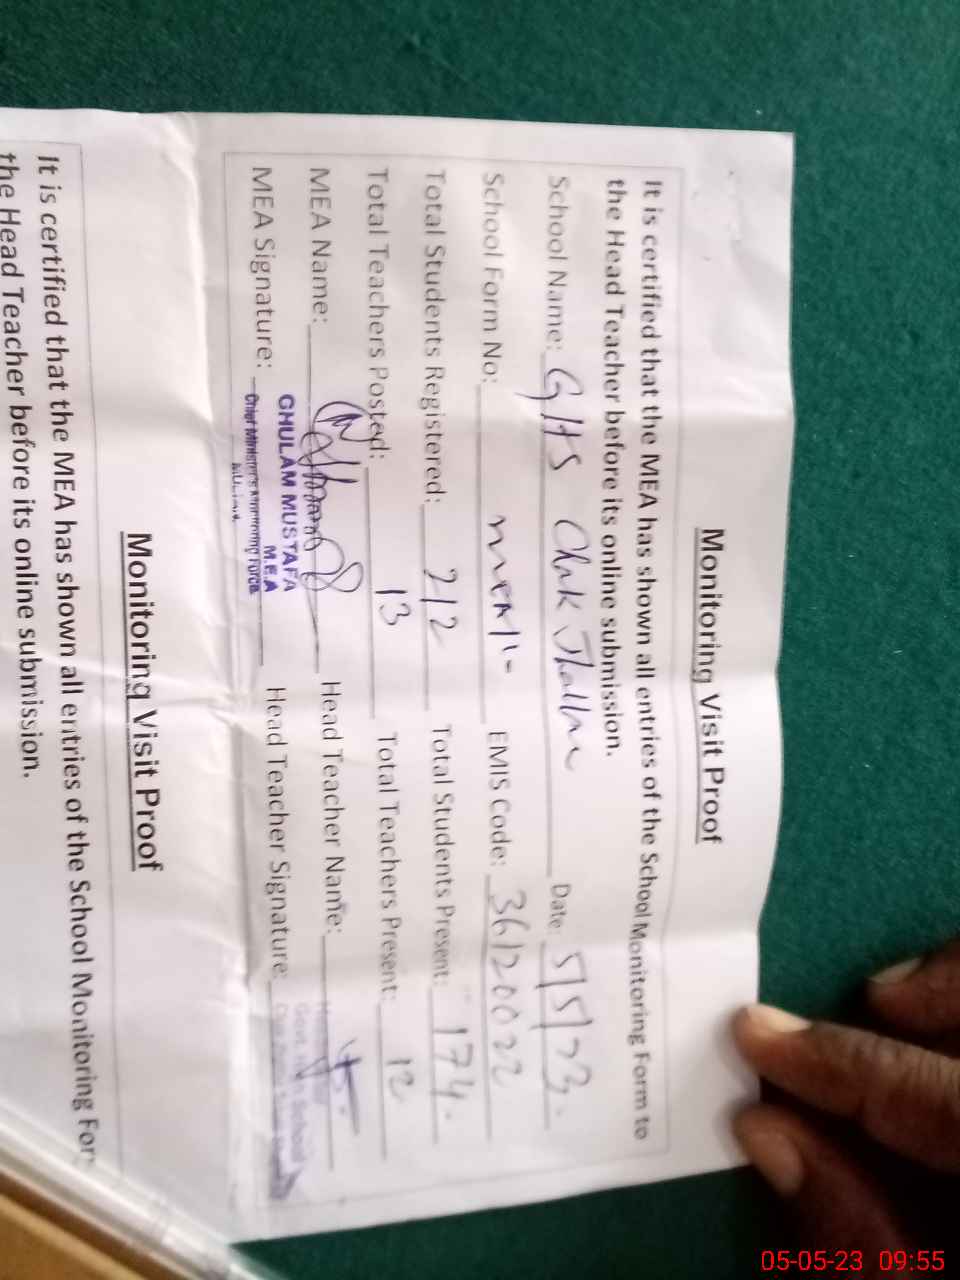 Monitoring Visit Proof
It is certified that the MEA has shown all entries of the School Monitoring Form to
the Head Teacher before its online submission.
School Name: GHS Chak Jhallu Date: 5/5/23.
School Form No: EMIS Code: 36120022
Total Students Registered: 212 Total Students Present: 174.
Total Teachers Posted: 13 Total Teachers Present: 12
MEA Name: Head Teacher Name:
MEA Signature: Head Teacher Signature:
GHULAM MUSTAFA
M.E.A
Chief Minister's Monitoring Force
Govt. High School
Monitoring Visit Proof
It is certified that the MEA has shown all entries of the School Monitoring For
the Head Teacher before its online submission.
05-05-23 09:55